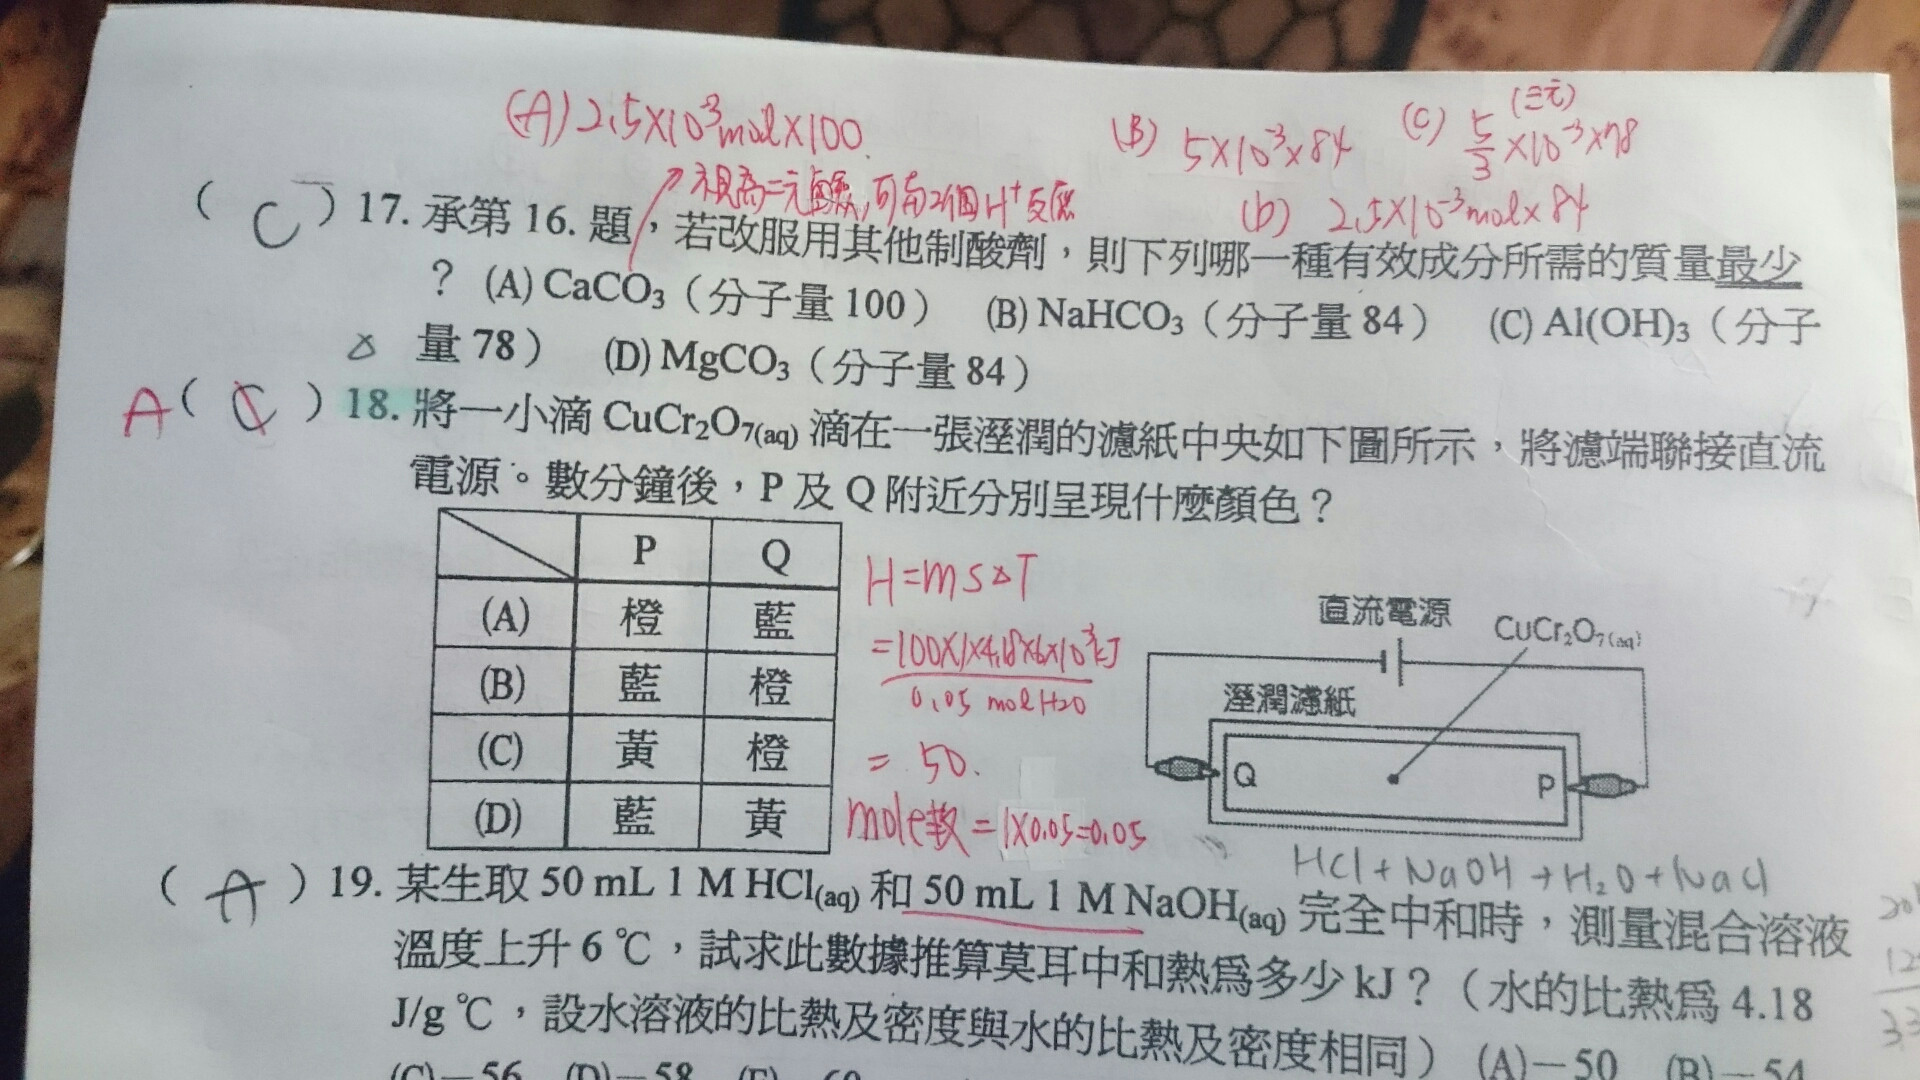 (A) 2.5×10⁻³mol×100
(B) 5×10⁻³×84
(C) 5/3×10⁻³×78
(三元)
視為二元鹼,可与2個H⁺反應
(D) 2.5×10⁻³mol×84
( C ) 17. 承第 16. 題,若改服用其他制酸劑,則下列哪一種有效成分所需的質量最少
? (A) CaCO₃(分子量 100) (B) NaHCO₃(分子量 84) (C) Al(OH)₃(分子
△ 量 78) (D) MgCO₃(分子量 84)
A ( C ) 18. 將一小滴 CuCr₂O₇(aq) 滴在一張溼潤的濾紙中央如下圖所示,將濾端聯接直流
電源。數分鐘後,P 及 Q 附近分別呈現什麼顏色?
P Q
(A) 橙 藍
(B) 藍 橙
(C) 黃 橙
(D) 藍 黃
H=msΔT
=100×1×4.18×6×10⁻³kJ
0.05 mol H₂O
= 50.
mole數=1×0.05=0.05
直流電源
CuCr₂O₇(aq)
溼潤濾紙
Q P
HCl+NaOH→H₂O+NaCl
( A ) 19. 某生取 50 mL 1 M HCl(aq) 和 50 mL 1 M NaOH(aq) 完全中和時,測量混合溶液
溫度上升 6 ℃,試求此數據推算莫耳中和熱爲多少 kJ?(水的比熱爲 4.18
J/g ℃,設水溶液的比熱及密度與水的比熱及密度相同) (A)−50 (B)−54
(C)−56 (D)−58 (E)−60